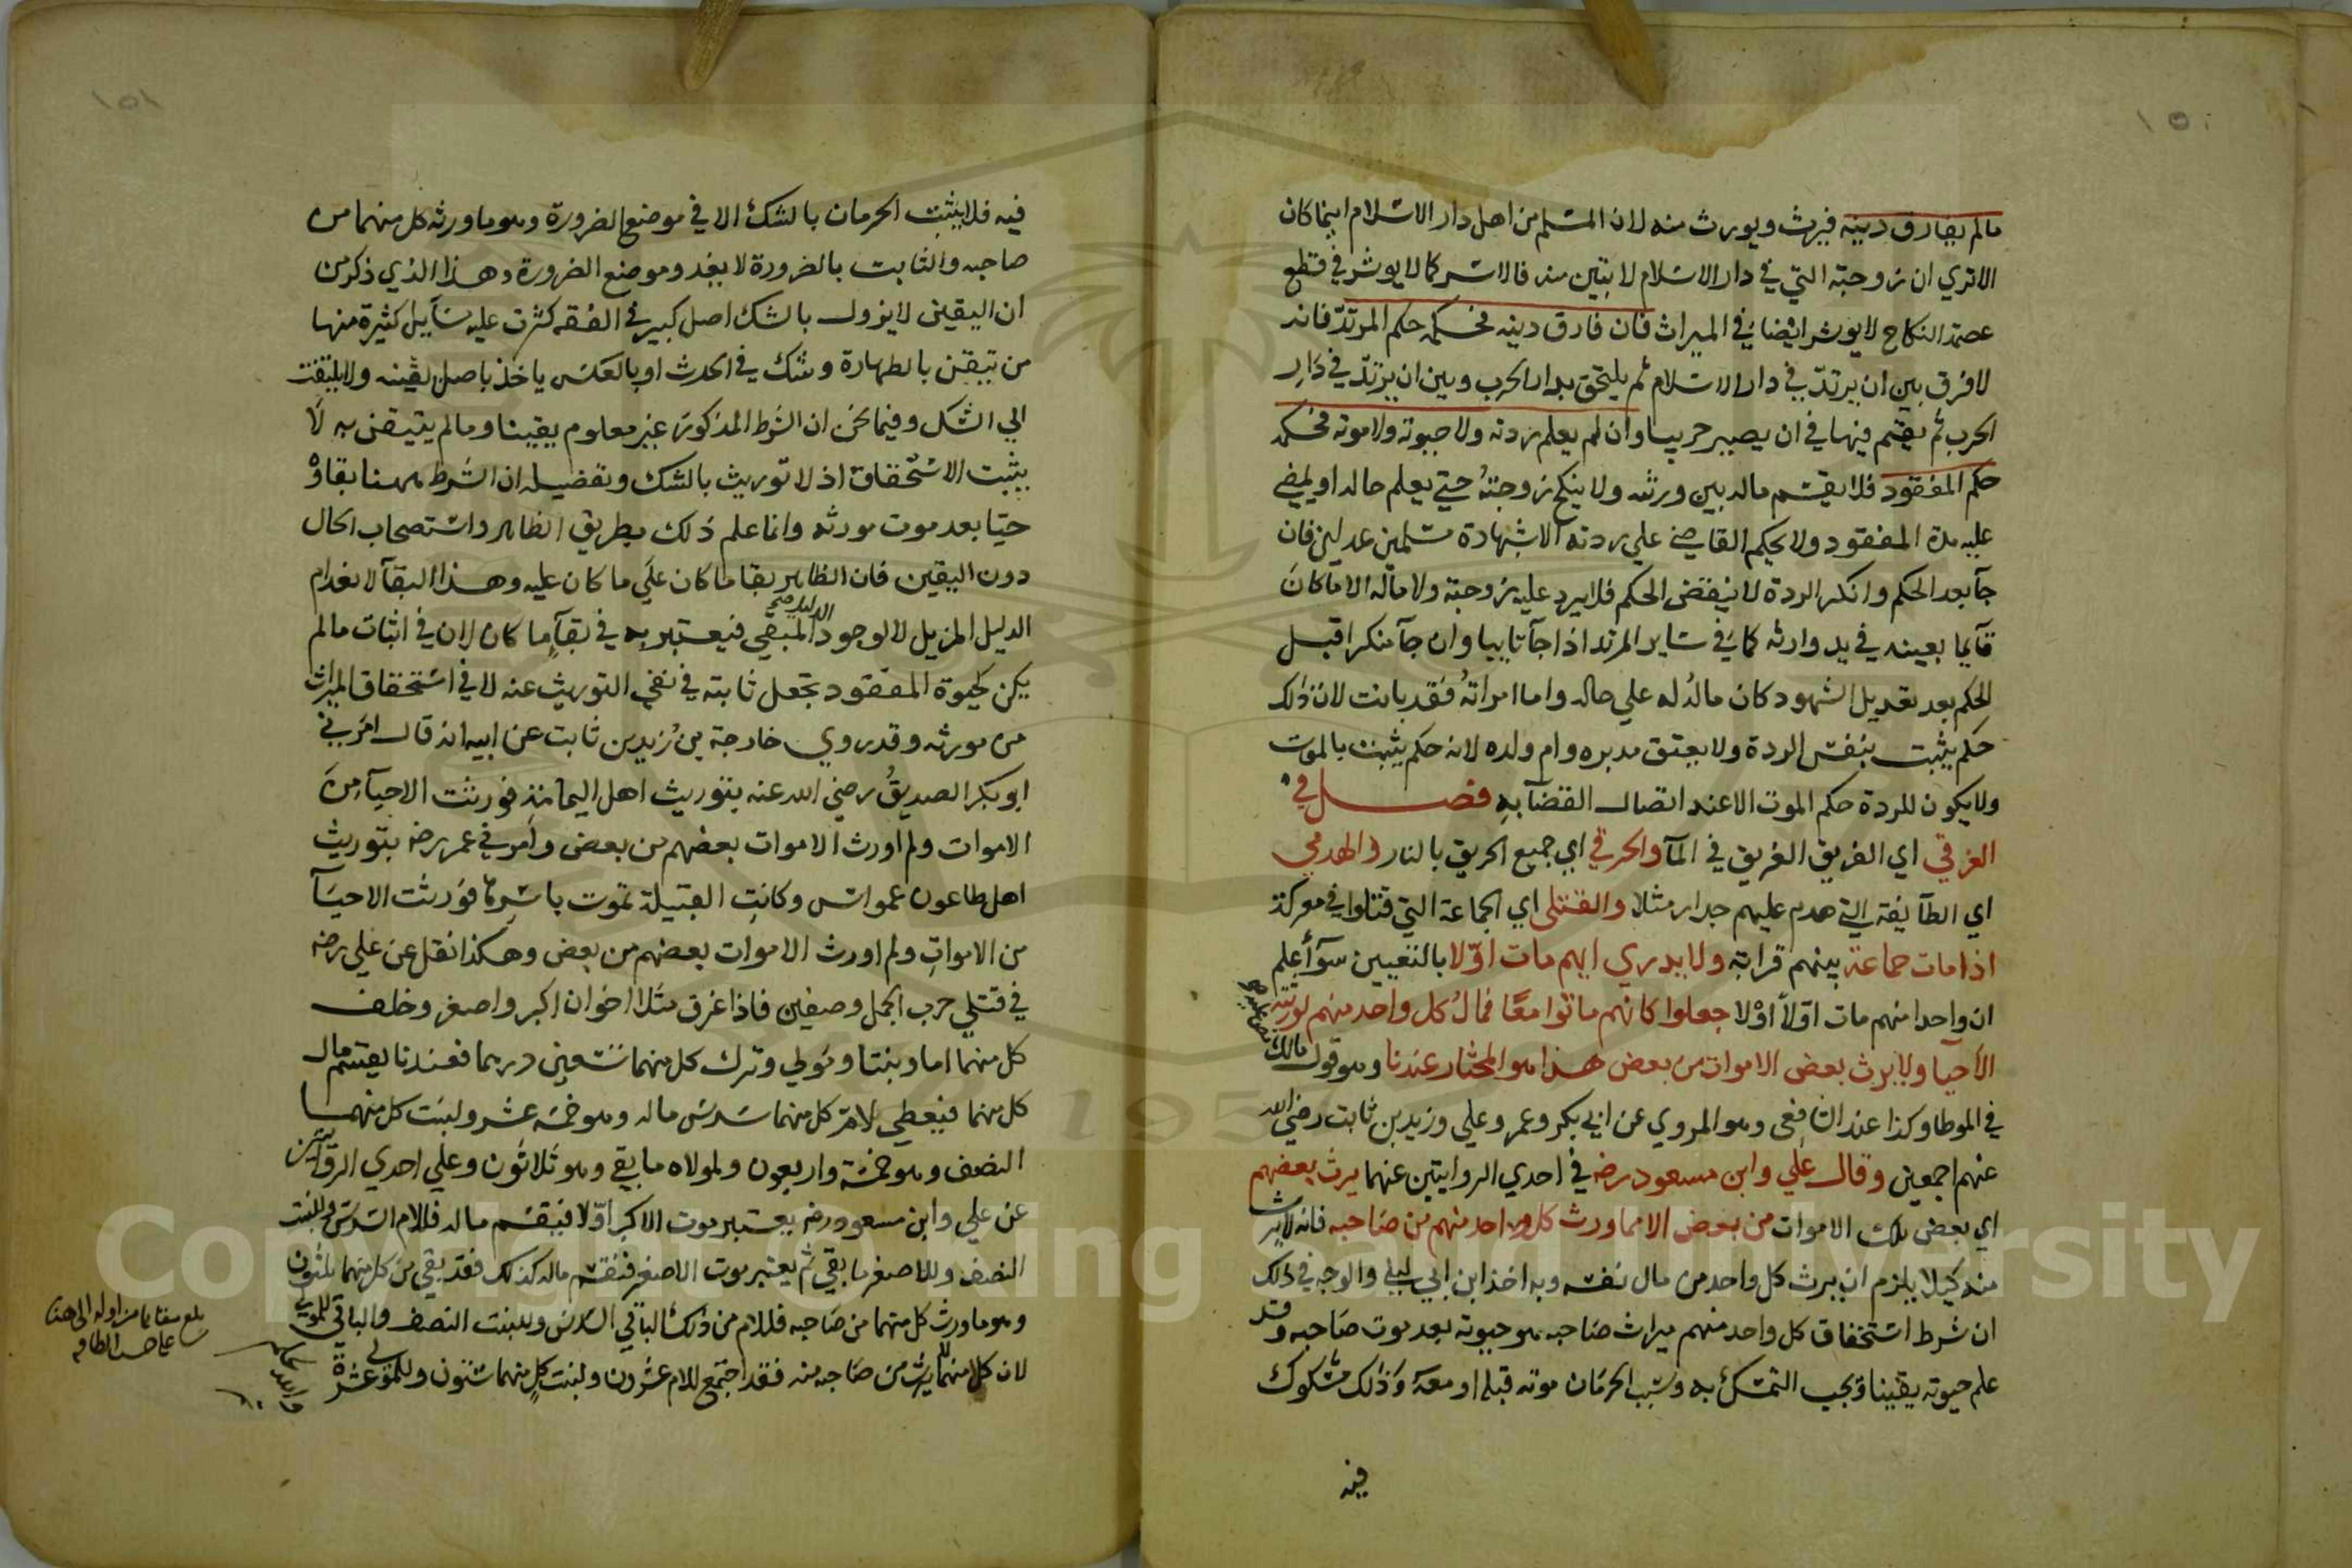 ١٥٠
مالم يفارق دينه فيرث ويورث منه لان المسلم من اهل دار الاسلام اينما كان
الاتري ان زوجته التي في دار الاسلام لا تبين منه فالاسر كما لا يوثر في قطع
عصمة النكاح لا يوثر ايضا في الميراث فان فارق دينه فحكمه حكم المرتد فانه
لا فرق بين ان يرتد في دار الاسلام ثم يلتحق بدار الحرب وبين ان يرتد في دار
الحرب ثم يقيم فيها في ان يصير حربيا وان لم يعلم ردته ولا حيوته ولا موته فحكمه
حكم المفقود فلا يقسم ماله بين ورثته ولا ينكح زوجته حتي يعلم حاله او يمضي
عليه مدة المفقود ولا يحكم القاضي علي ردته الا بشهادة مسلمين عدلين فان
جآ بعد الحكم وانكر الردة لا ينقض الحكم فلا يرد عليه زوجته ولا ماله الا ما كان
قايما بعينه في يد وارثه كما في ساير المرتد اذا جآ تايبا وان جآ منكرا قبل
الحكم بعد تعديل الشهود كان ماله له علي حاله واما امراته فقد بانت لان ذلك
حكم يثبت بنفس الردة ولا يعتق مدبره وام ولده لانه حكم يثبت بالموت
ولا يكون للردة حكم الموت الا عند اتصال القضآ به فصل في
الغرقي اي الفريق الغريق في المآ والحرقي اي جميع الحريق بالنار والهدمي
اي الطآيفة التي هدم عليهم جدار مثلا والقتلي اي الجماعة التي قتلوا في معركة
اذا مات جماعة بينهم قرابة ولا يدري ايهم مات اوّلا بالتعيين سوآ أعلم
ان واحدا منهم مات اولا أوْ لا جعلوا كانهم ماتوا معًا فمالُ كل واحد منهم لورثته
الأحيا ولا يرث بعض الاموات من بعض هذا هو المختار عندنا وهو قول مالك
في الموطا وكذا عند الشافعي وهو المروي عن ابي بكر وعمر وعلي وزيد بن ثابت رضي الله
عنهم اجمعين وقال علي وابن مسعود رضه في احدي الروايتين عنهما يرث بعضهم
اي بعض تلك الاموات من بعض الا مما ورث كل واحد منهم من صاحبه فانه لا يرث
منه كيلا يلزم ان يرث كل واحد من مال نفسه وبه اخذ ابن ابي ليلي والوجه في ذلك
ان شرط استحقاق كل واحد منهم ميراث صاحبه هو حيوته بعد موت صاحبه وقد
علم حيوته يقينا فيجب التمسك به وسبب الحرمان موته قبله او معه وذلك مشكوك
فيه
١٥١
فيه فلا يثبت الحرمان بالشك الا في موضع الضرورة وهو ما ورثه كل منهما من
صاحبه والثابت بالضرورة لا يعدو موضع الضرورة وهذا الذي ذكر من
ان اليقين لا يزول بالشك اصل كبير في الفقه كثرت عليه مسآيل كثيرة منها
من تيقن بالطهارة وشك في الحدث او بالعكس ياخذ باصل يقينه ولا يلتفت
الي الشك وفيما نحن ان الشرط المذكور غير معلوم يقينا وما لم يتيقن به لا
يثبت الاستحقاق اذ لا توريث بالشك وتفصيله ان الشرط ههنا بقاؤ
حيا بعد موت مورثه وانما علم ذلك بطريق الظاهر واستصحاب الحال
دون اليقين فان الظاهر بقا ما كان علي ما كان عليه وهذا البقآ لانعدام
الدليل المزيل لا لوجود الدليل المبقي فيعتبر به في بقآ ما كان لا في اثبات ما لم
يكن كحيوة المفقود تجعل ثابتة في نفي التوريث عنه لا في استحقاق الميراث
من مورثه وقد روي خارجة بن زيد بن ثابت عن ابيه انه قال امرني
ابو بكر الصديق رضي الله عنه بتوريث اهل اليمامة فورثت الاحيآ من
الاموات ولم اورث الاموات بعضهم من بعض وامرني عمر رضه بتوريث
اهل طاعون عمواس وكانت القبيلة تموت باسرها فورثت الاحيآ
من الاموات ولم اورث الاموات بعضهم من بعض وهكذا نقل عن علي رضه
في قتلي حرب الجمل وصفين فاذا غرق مثلا اخوان اكبر واصغر وخلف
كل منهما اما وبنتا ومولي وترك كل منهما تسعين درهما فعندنا يقسم مال
كل منهما فيعطي لام كل منهما سدس ماله وهو خمسة عشر ولبنت كل منهما
النصف وهو خمسة واربعون ولمولاه ما بقي وهو ثلاثون وعلي احدي الروايتين
عن علي وابن مسعود رضه يعتبر موت الاكبر اوّلا فيقسم ماله فللام السدس وللبنت
النصف وللاصغر ما بقي ثم يعتبر موت الاصغر فيقسم ماله كذلك فقد بقي من كل منهما ثلثون
وهو ما ورث كل منهما من صاحبه فللام من ذلك الباقي السدس وللبنت النصف والباقي للمولي
لان كلا منهما لا يرث من صاحبه منه فقد اجتمع للام عشرون ولبنت كل منهما ستون وللمولي عشرة
بلغ مقابلة من اوله الي هنا
Copyright © King Saud University
1957